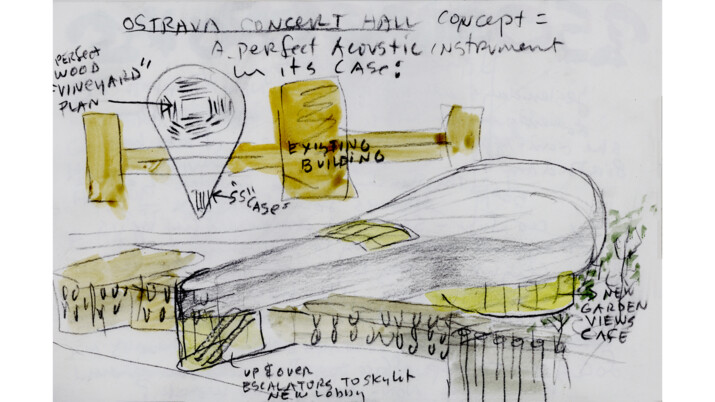 OSTRAVA CONCERT HALL CONCEPT =
A PERFECT ACOUSTIC INSTRUMENT
IN ITS CASE:
PERFECT
WOOD
"VINEYARD"
PLAN
EXISTING
BUILDING
"SS"
CASE
NEW
GARDEN
VIEWS
CAFE
UP & OVER
ESCALATORS TO SKYLIT
NEW LOBBY